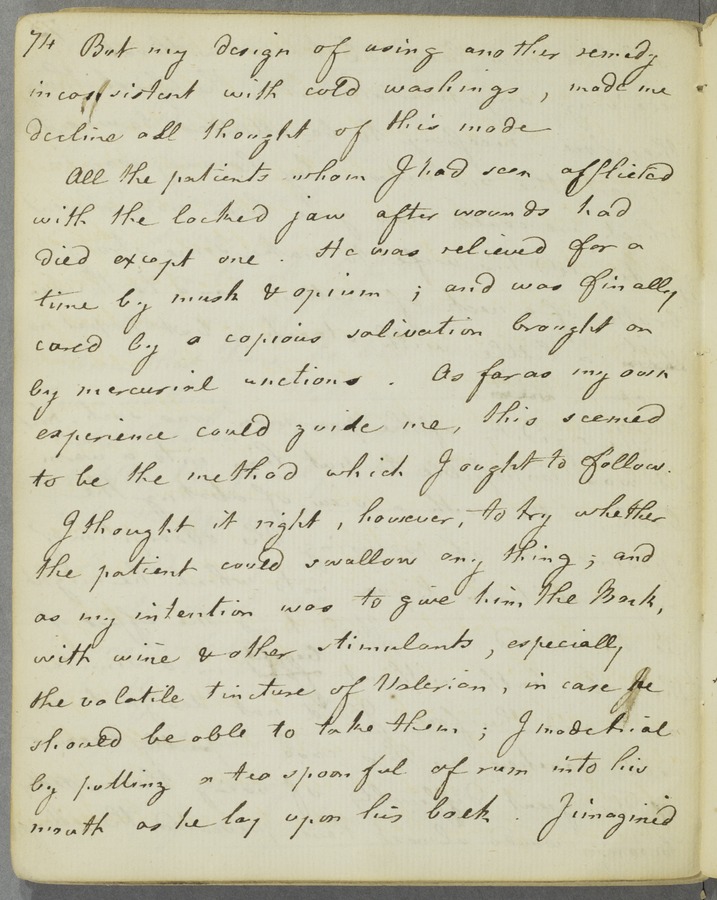 74 But my design of using another remedy
inconsistent with cold washings, made me
decline all thought of this mode
All the patients whom I had seen afflicted
with the locked jaw after wounds had
died except one. He was relieved for a
time by musk & opium; and was finally
cured by a copious salivation brought on
by mercurial unctions. As far as my own
experience could guide me, this scemed
to be the method which I ought to follow.
I thought it right, however, to try whether
the patient could swallow any thing; and
as my intention was to give him the Bark,
with wine & other stimulants, especially
the volatile tincture of Valerian, in case he
should be able to take them; I made trial
by putting a tea spoonful of rum into his
mouth as he lay upon his back. I imagined